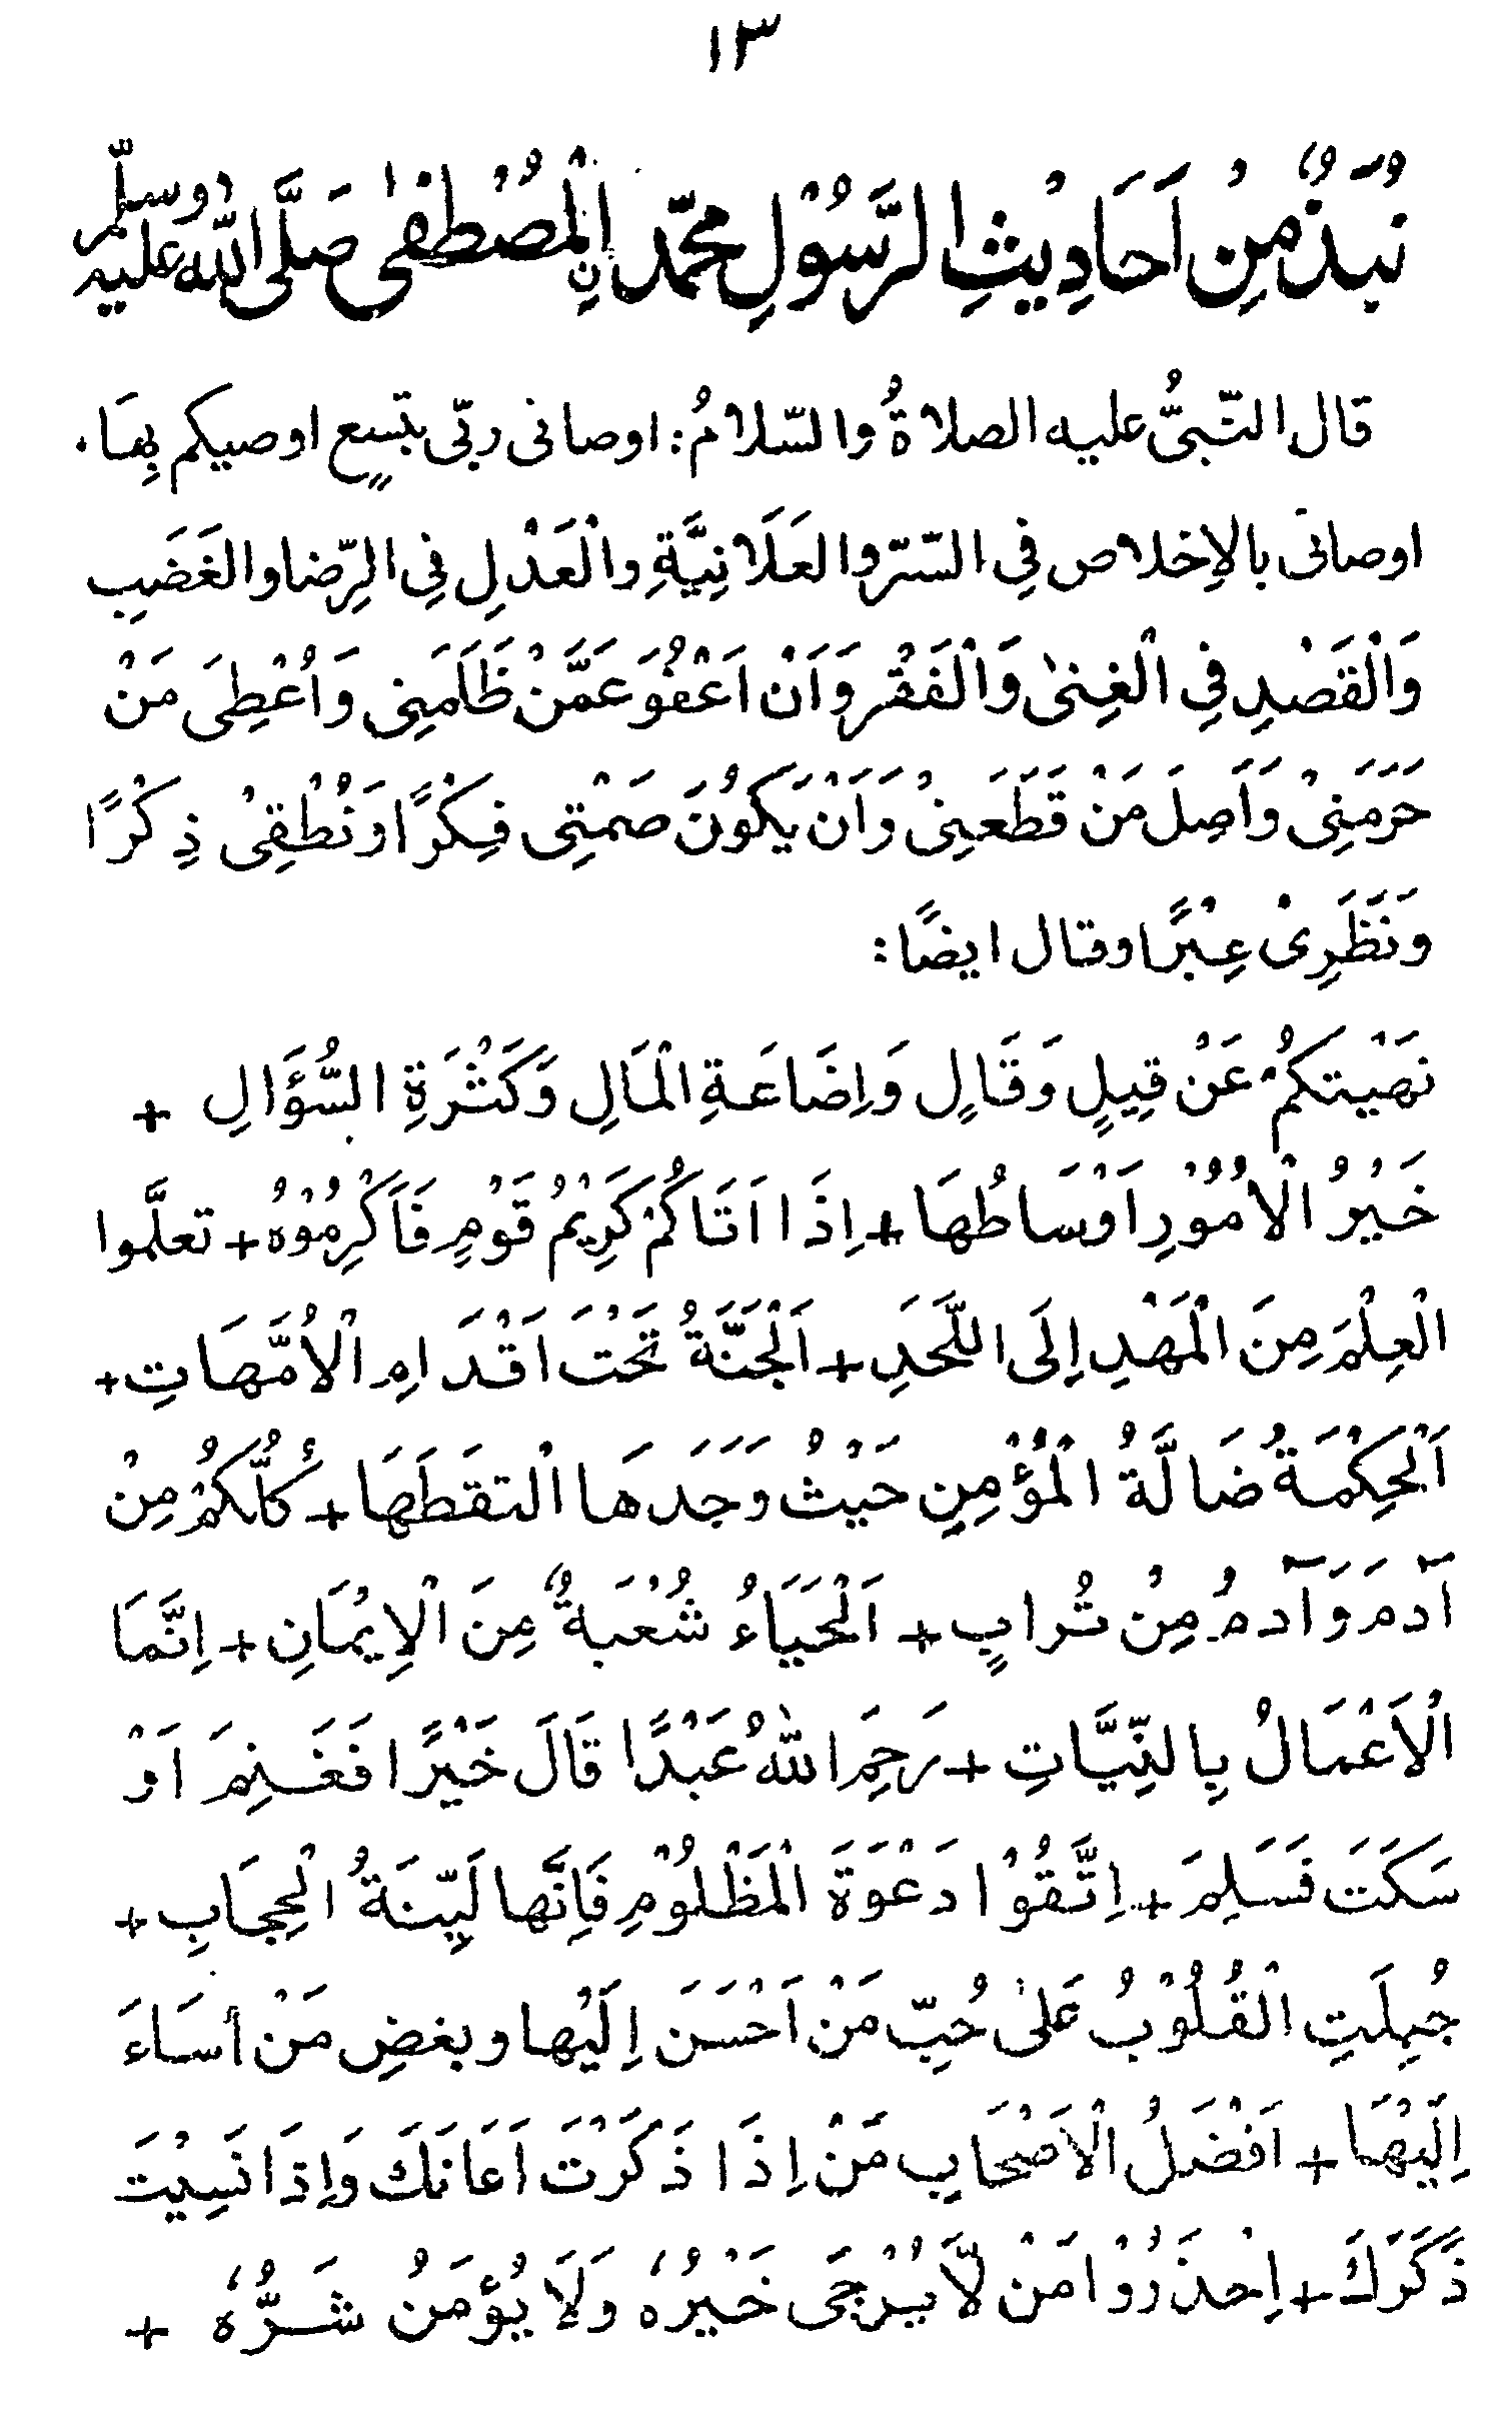 ١٣
نُبَذٌ مِنْ اَحَادِيْثِ الرَّسُوْلِ مُحَمَّدِ نِ الْمُصْطَفٰى صَلَّى اللّٰهُ عليه وسلّم
قال النّبىُّ عليه الصلاةُ والسّلامُ: اوصانى ربّى بتسعٍ اوصيكم بِهَا.
اوصانى بالاِخلاص فِي السّرّ والعَلَانِيَّةِ والْعَدْلِ فِى الرِّضا والغَضَبِ
وَالْقَصْدِ فِي الْغِنىٰ وَالْفَقْرِ وَاَنْ اَعْفُوَ عَمَّنْ ظَلَمَنِى وَاُعْطِىَ مَنْ
حَرَمَنِىْ وَاَصِلَ مَنْ قَطَعَنِىْ وَاَنْ يَكُوْنَ صَمْتِى فِكْرًا وَنُطْقِىْ ذِكْرًا
وَنَظَرِىْ عِبْرًا وقال ايضًا:
نَهَيْتكُمْ عَنْ قِيلٍ وَقَالٍ وَاِضَاعَةِ الْمَالِ وَكَثْرَةِ السُّؤَالِ +
خَيْرُ الْاُمُوْرِ اَوْسَاطُهَا + اِذَا اَتَاكُمْ كَرِيْمُ قَوْمٍ فَاَكْرِمُوْهُ + تعلَّموا
الْعِلْمَ مِنَ الْمَهْدِ اِلَى اللَّحَدِ + اَلْجَنَّةُ تَحْتَ اَقْدَامِ الْاُمَّهَاتِ +
اَلْحِكْمَةُ ضَالَّةُ الْمُؤْمِنِ حَيْثُ وَجَدَهَا الْتقَطَهَا + كُلُّكُمْ مِنْ
آدَمَ وَآدمُ مِنْ تُرابٍ + اَلْحَيَاءُ شُعْبَةٌ مِنَ الْاِيْمَانِ + اِنَّمَا
الْاَعْمَالُ بِالنِّيَّاتِ + رَحِمَ اللّٰهُ عَبْدًا قَالَ خَيْرًا فَغَنِمَ اَوْ
سَكَتَ فَسَلِمَ + اِتَّقُوْا دَعْوَةَ الْمَظْلُوْمِ فَاِنَّها لَيِّنَةُ الْحِجَابِ +
جُبِلَتِ الْقُلُوْبُ عَلىٰ حُبِّ مَنْ اَحْسَنَ اِلَيْها وبغضِ مَنْ أسَاءَ
اِلَيْهَا + اَفْضَلُ الْاَصْحَابِ مَنْ اِذَا ذَكَرْتَ اَعَانَكَ وَاِذَا نَسِيْتَ
ذَكَّرَكَ + اِحْذَرُوْا مَنْ لَّا يُرْجَى خَيْرُهٗ وَلَا يُؤْمَنُ شَرُّهٗ +